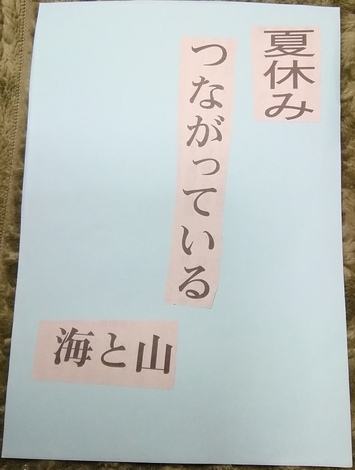 夏休み
つながっている
海と山